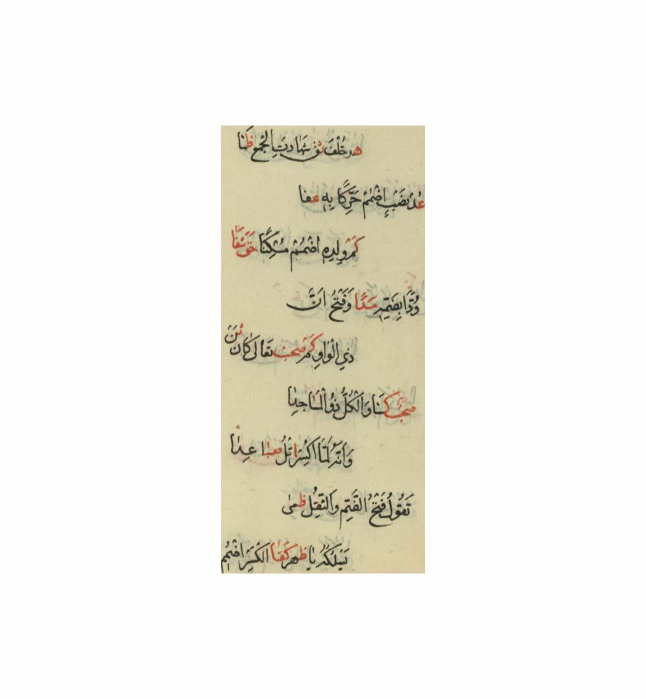 هد خلف ثق شهادت الجمع ظما
عد نصب اضمم حركا به عفا
كم ولده اضمم مسكنا حق شفا
ودا بضمه مدا وفتح ان
ذي الواو كم صحب تعالى كان ثن
صحب كسا والكل ذو المساجدا
وانه لما اكسر اتل
تقول فتح الضم والثقل ظمى
نسلكه يا ظهر كفا الكسر اضمم